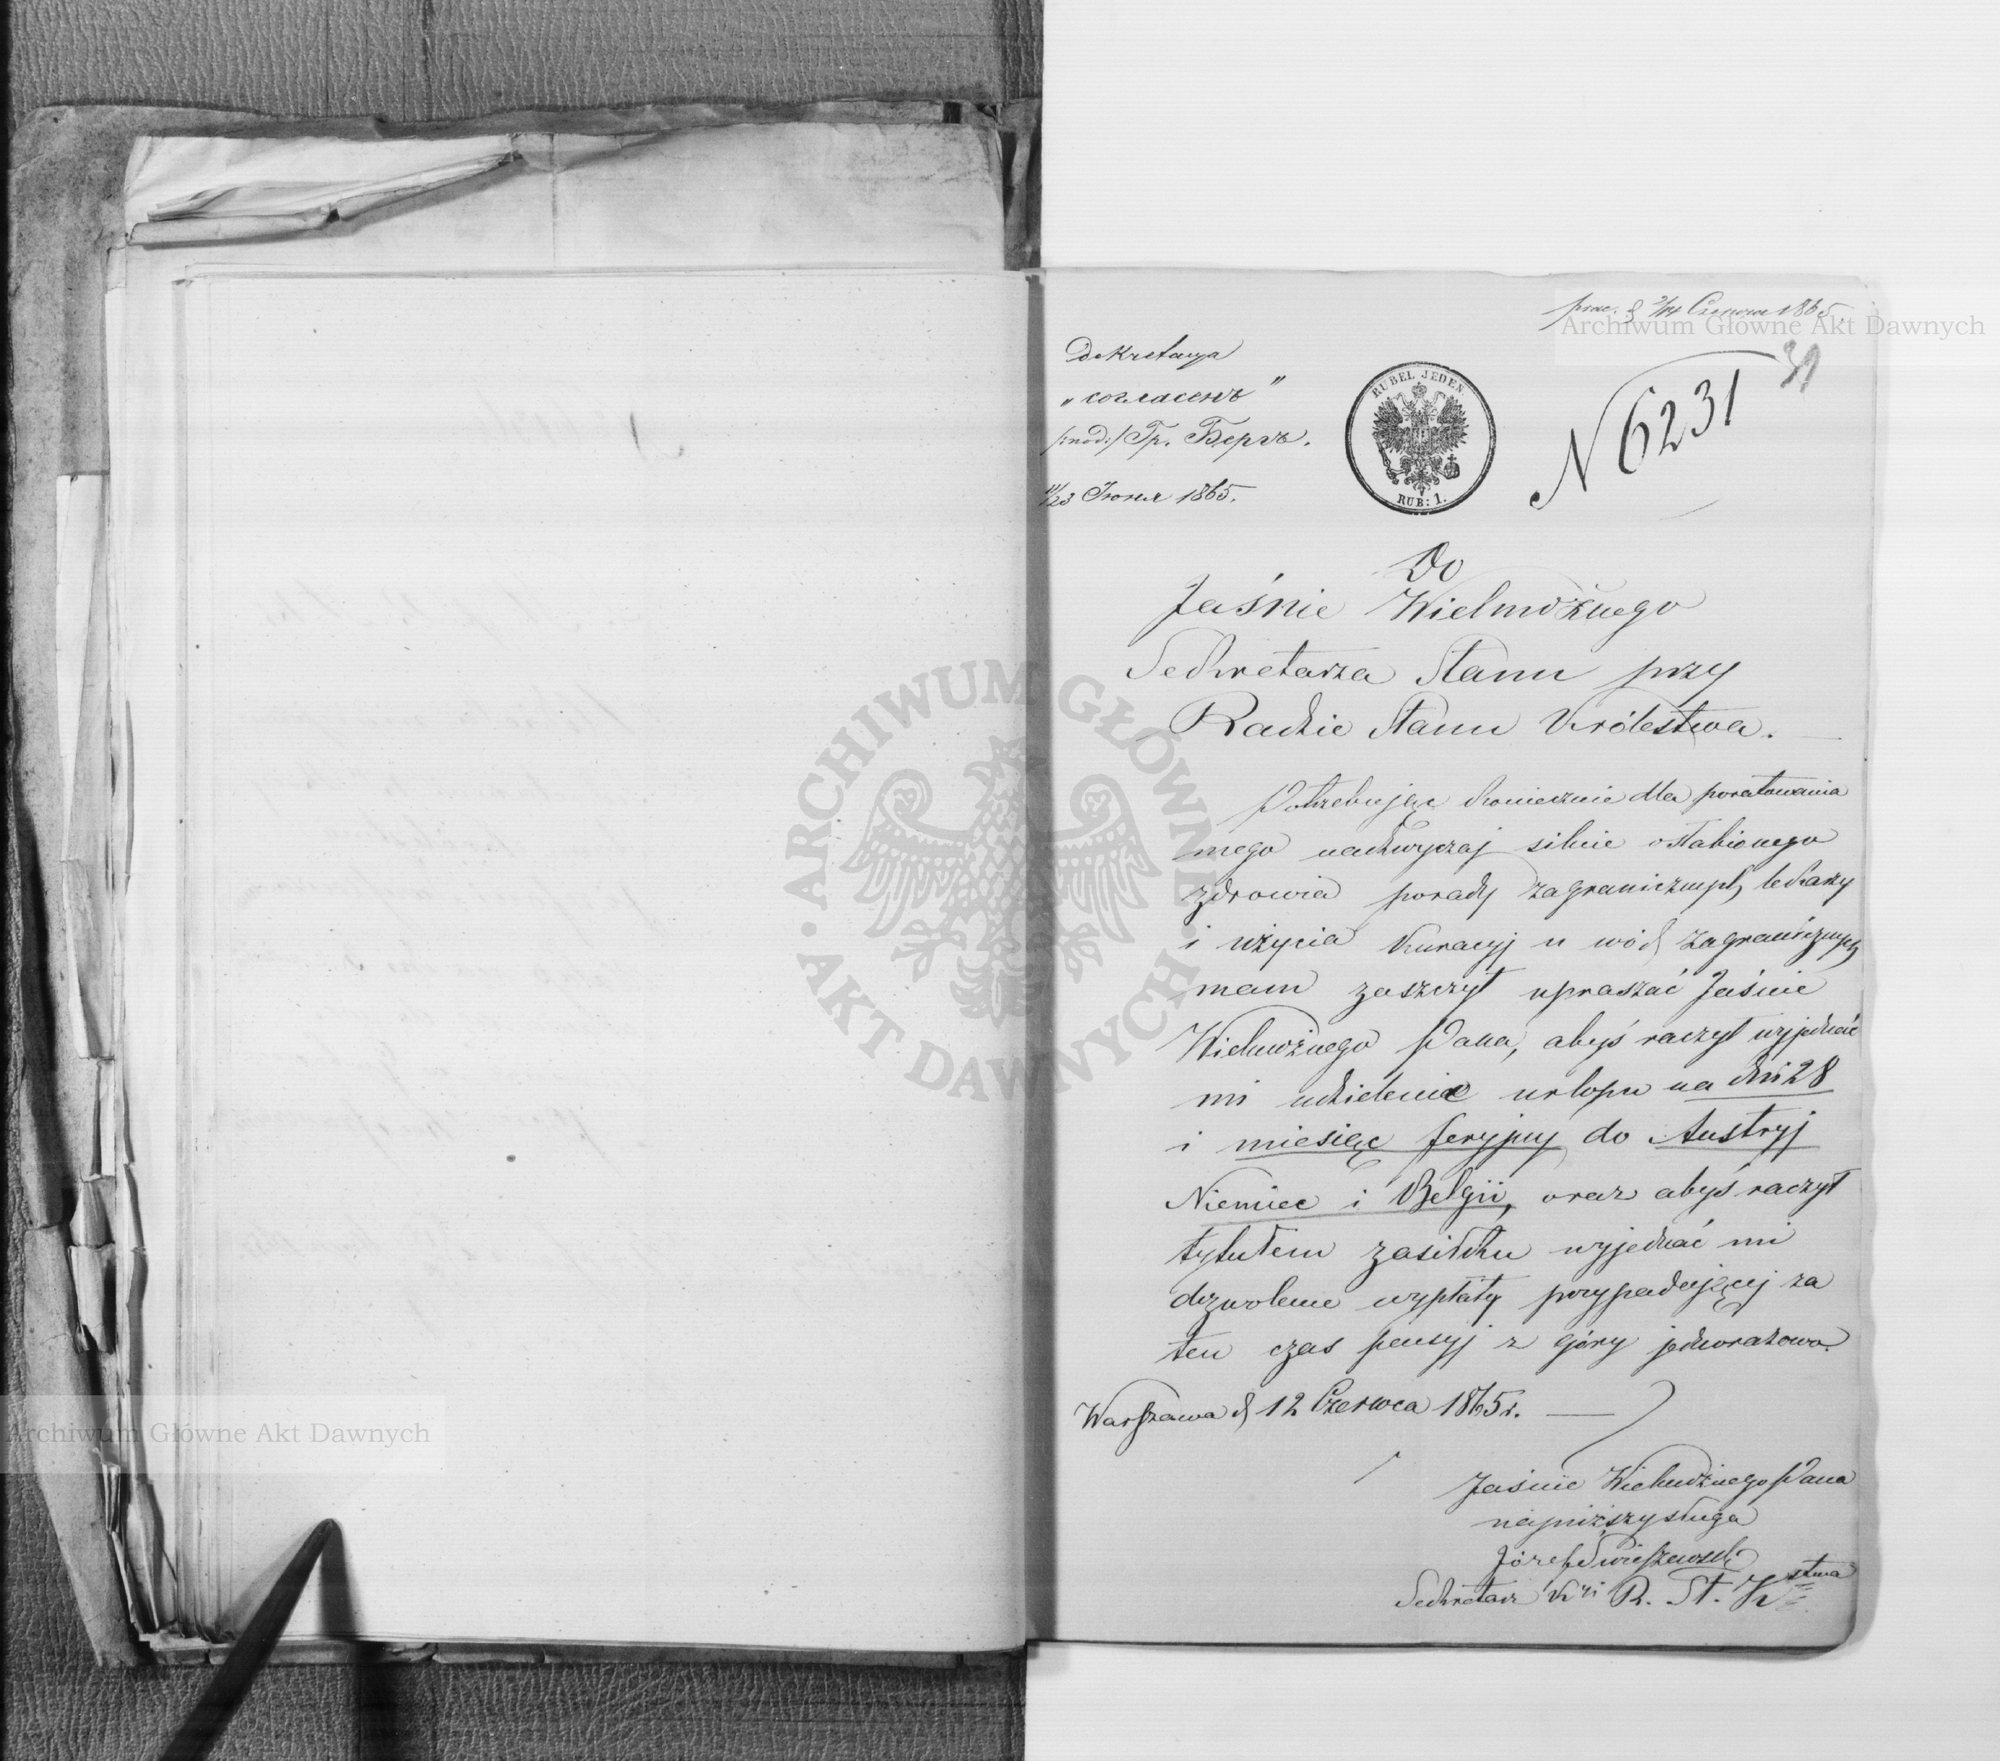 Dekretacya
„согласенъ”
/: под:/ Гр. Бергъ.
11/23 Июня 1865.
RUBEL JEDEN
RUB: 1.
prae. d 2/14 Czerwca 1865.
31
N 6231
Do
Jaśnie Wielmożnego
Sekretarza Stanu przy
Radzie Stanu Królestwa.
Potrzebując koniecznie dla poratowania
mego nadzwyczaj silnie osłabionego
zdrowia porady zagranicznych lekarzy
i użycia kuracyj u wód zagranicznych
mam zaszczyt upraszać Jaśnie
Wielmożnego Pana, abyś raczył wyjednać
mi udzielenie urlopu na dni 28
i miesiąc feryjny do Austryj
Niemiec i Belgii, oraz abyś raczył
tytułem zasiłku wyjednać mi
dozwolenie wypłaty przypadającej za
ten czas pensyj z góry jednorazowo.
Warszawa d 12 Czerwca 1865 r.
Jaśnie Wielmożnego Pana
najniższy sługa
Józef Świeszewski
Sekretarz Krii R. St. Kstwa
ARCHIWUM GŁÓWNE AKT DAWNYCH
Archiwum Główne Akt Dawnych
Archiwum Główne Akt Dawnych